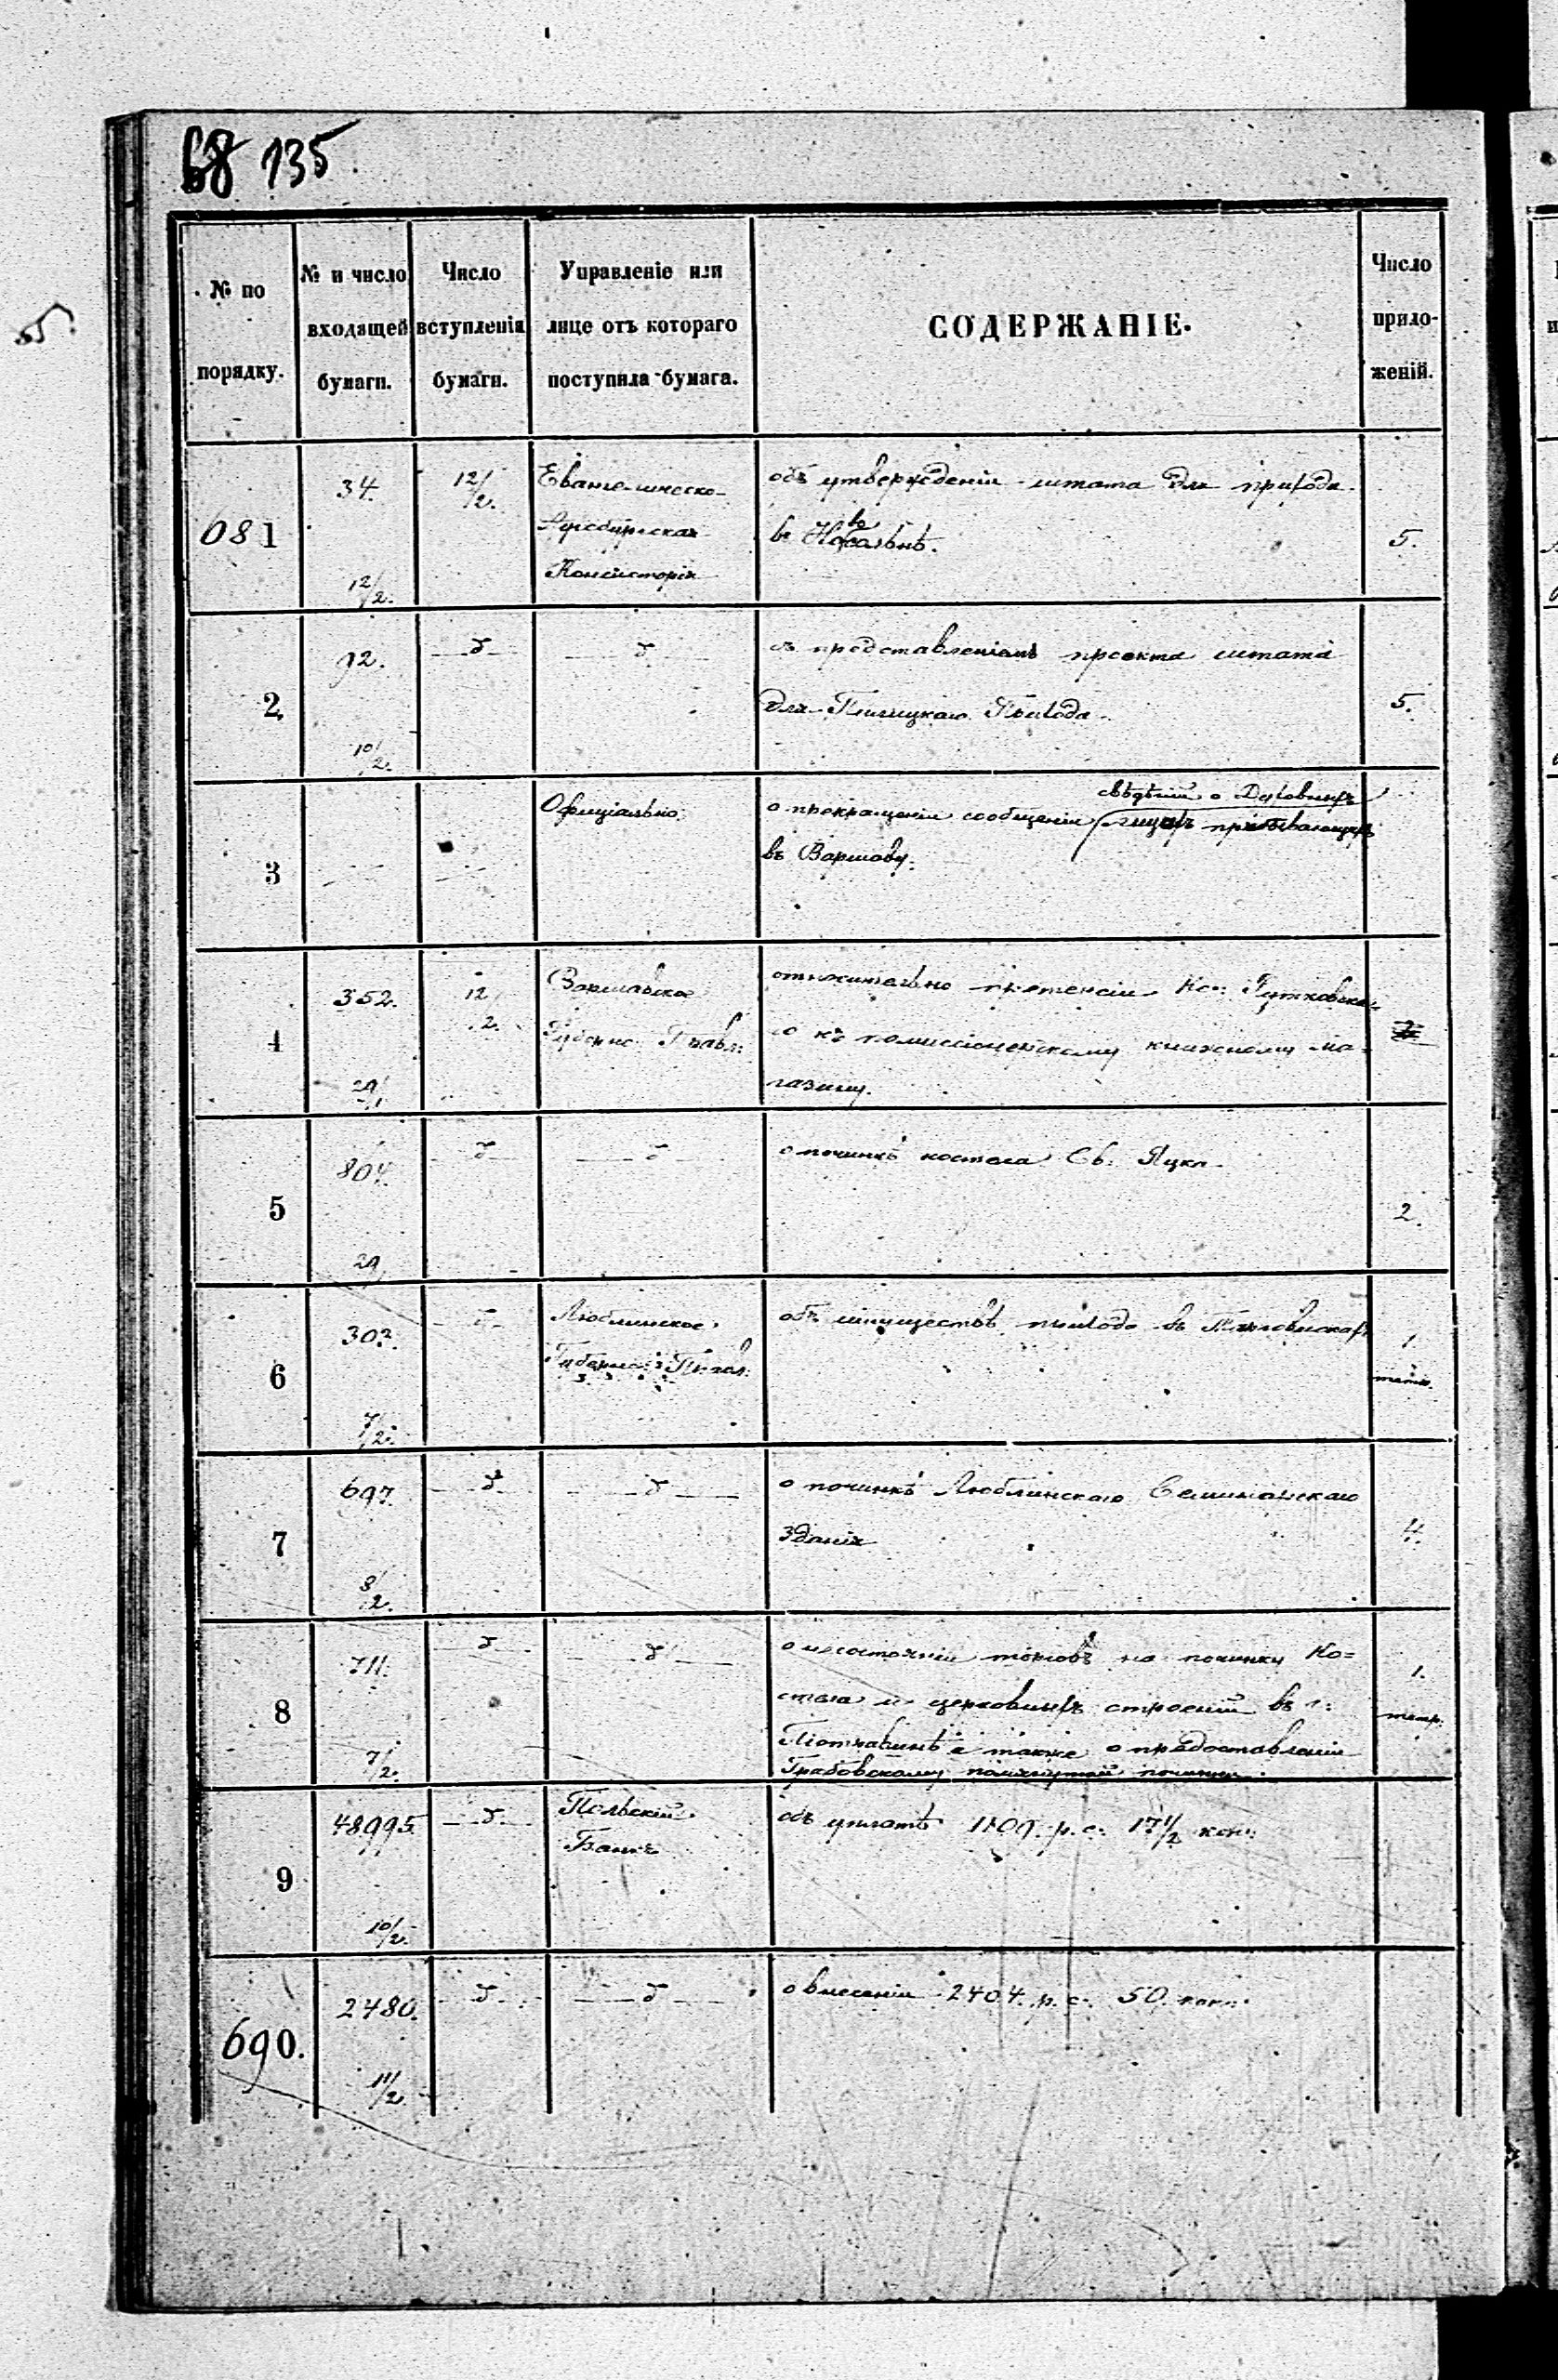 68 135
№ по порядку.
№ и число входящей бумаги.
Число вступленія бумаги.
Управленіе или лице отъ котораго поступила бумага.
СОДЕРЖАНІЕ.
Число приложеній.
681
34.
12/2.
12/2.
Евангелическо-
Аугсбургская
Консисторія
объ утвержденіи штата для прихода
въ
5.
2
12.
10/2.
— δ —
— δ —
съ представленіемъ проекта штата
для Пилицкаго Прихода.
5.
3
Офиціально.
о прекращеніи сообщенія свѣдѣній о Духовныхъ
лицахъ прибывающихъ
въ Варшаву.
4
352.
29/1
12/2.
Варшавское
Губернс: Правл:
относительно претенсіи Кс: Гутковска-
го къ коммиссіонерскому книжному ма=
газину.
5
804.
29
— δ —
— δ —
о починкѣ костела Св: Яцка.
2.
6
302.
7/2.
— δ —
Люблинское
Губернс: Правл:
объ имуществѣ прихода въ
1.
тетр.
7
697.
8/2.
— δ —
— δ —
о починкѣ Люблинскаго Семинарскаго
Зданія
4.
8
711.
7/2.
— δ —
— δ —
о несостояніи торговъ на починку Ко=
стела и церковныхъ строеній въ г:
Піотравинѣ а также о предоставленіи
Грабовскому починки.
1.
тетр.
9
48995.
10/2.
— δ —
Польскій
Банкъ
объ уплатѣ 1109. р. с. 17 1/2 коп:
690.
2480.
11/2
— δ —
— δ —
о внесеніи 2404. р. с. 50. коп: